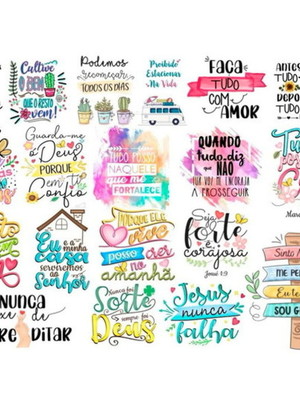 Cultive
O BEM
QUE O RESTO
vem!
Podemos
recomeçar
TODOS OS DIAS
Proibido
Estacionar
Na Vida
FAÇA
TUDO
COM
AMOR
ANTES
TUDO
DEPO
TUD
Guarda-me
ó Deus
PORQUE
em ti
Confio
TUDO POSSO
NAQUELE
que me
FORTALECE
QUANDO
tudo diz
NÃO
TUA VOZ ME ENCORAJA
A PROSSEGUIR
Eu e a minha
casa
serviremos ao
Senhor
PORQUE ELE
vive
posso
crer no
amanhã
Seja
forte
e
corajosa
Josué 1:9
Sinto M
ME PE
Eu te
SOU G
NUNCA
DITAR
Nunca foi
Sorte
sempre foi
Deus
Jesus
nunca
falha